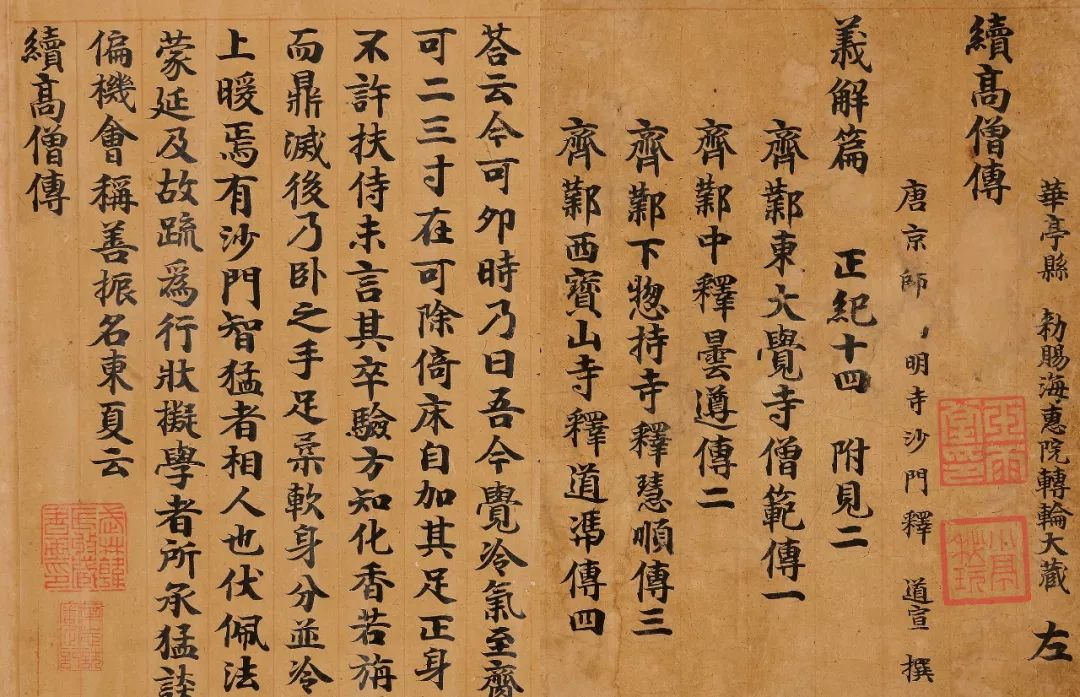 華亭縣 勑賜海惠院轉輪大藏 左
續高僧傳
唐京師 明寺沙門釋 道宣 撰
義解篇 正紀十四 附見二
齊鄴東大覺寺僧範傳一
齊鄴中釋曇遵傳二
齊鄴下惣持寺釋慧順傳三
齊鄴西寶山寺釋道馮傳四
荅云今可卯時乃曰吾今覺冷氣至齊
可二三寸在可除倚床自加其足正身
不許扶侍未言其卒驗方知化香若旃
而鼎滅後乃卧之手足柔軟身分並冷
上暖焉有沙門智猛者相人也伏佩法
蒙延及故䟽爲行狀擬學者所承猛談
偏機會稱善振名東夏云
續高僧傳